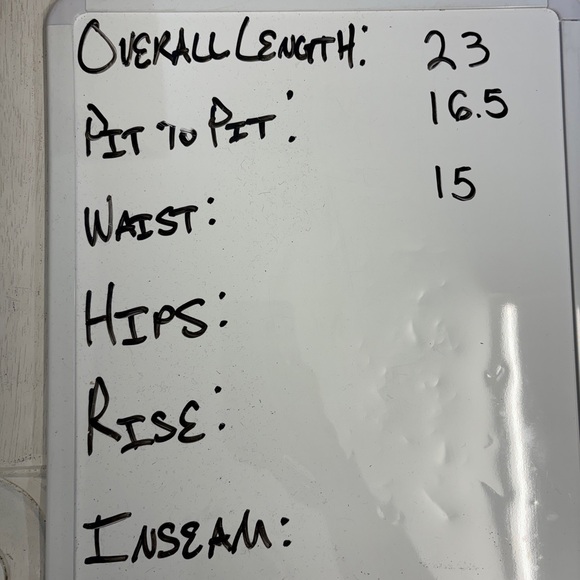 OVERALL LENGTH: 23
PIT TO PIT: 16.5
WAIST: 15
HIPS:
RISE:
INSEAM: